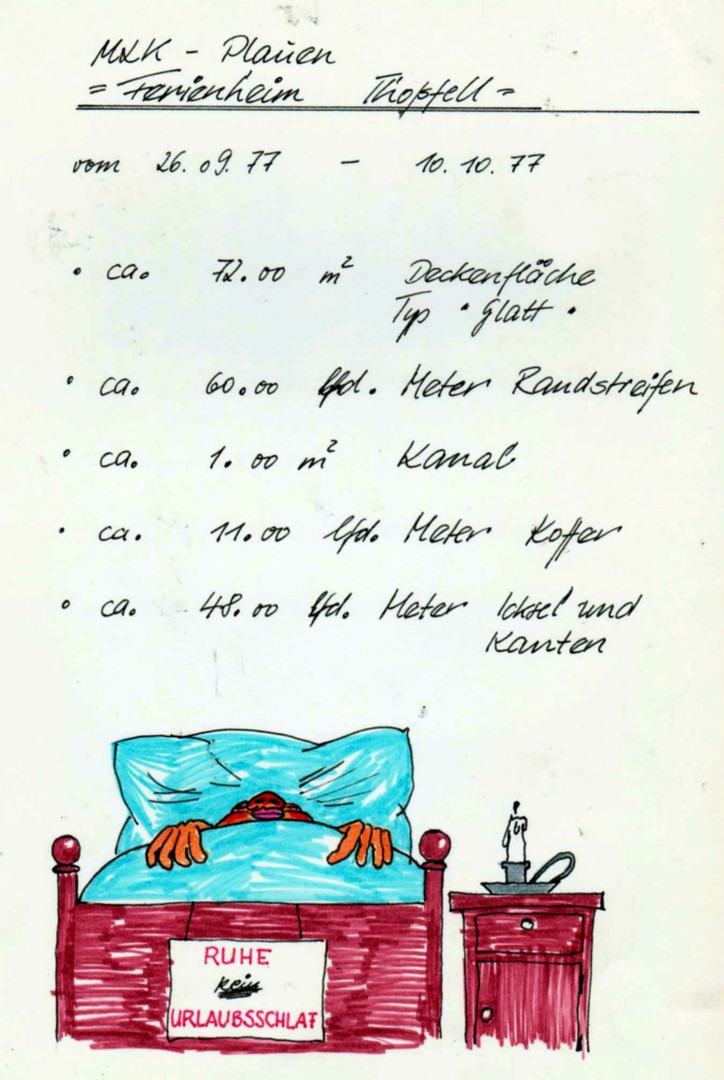 MLK - Plauen
= Ferienheim Thoßfell =
vom 26.09.77 - 10.10.77
• ca. 72.00 m² Deckenfläche
Typ "Glatt"
• ca. 60.00 lfd. Meter Randstreifen
• ca. 1.00 m² Kanal
• ca. 11.00 lfd. Meter Koffer
• ca. 48.00 lfd. Meter Ichsel und
Kanten
RUHE
kein
URLAUBSSCHLAF